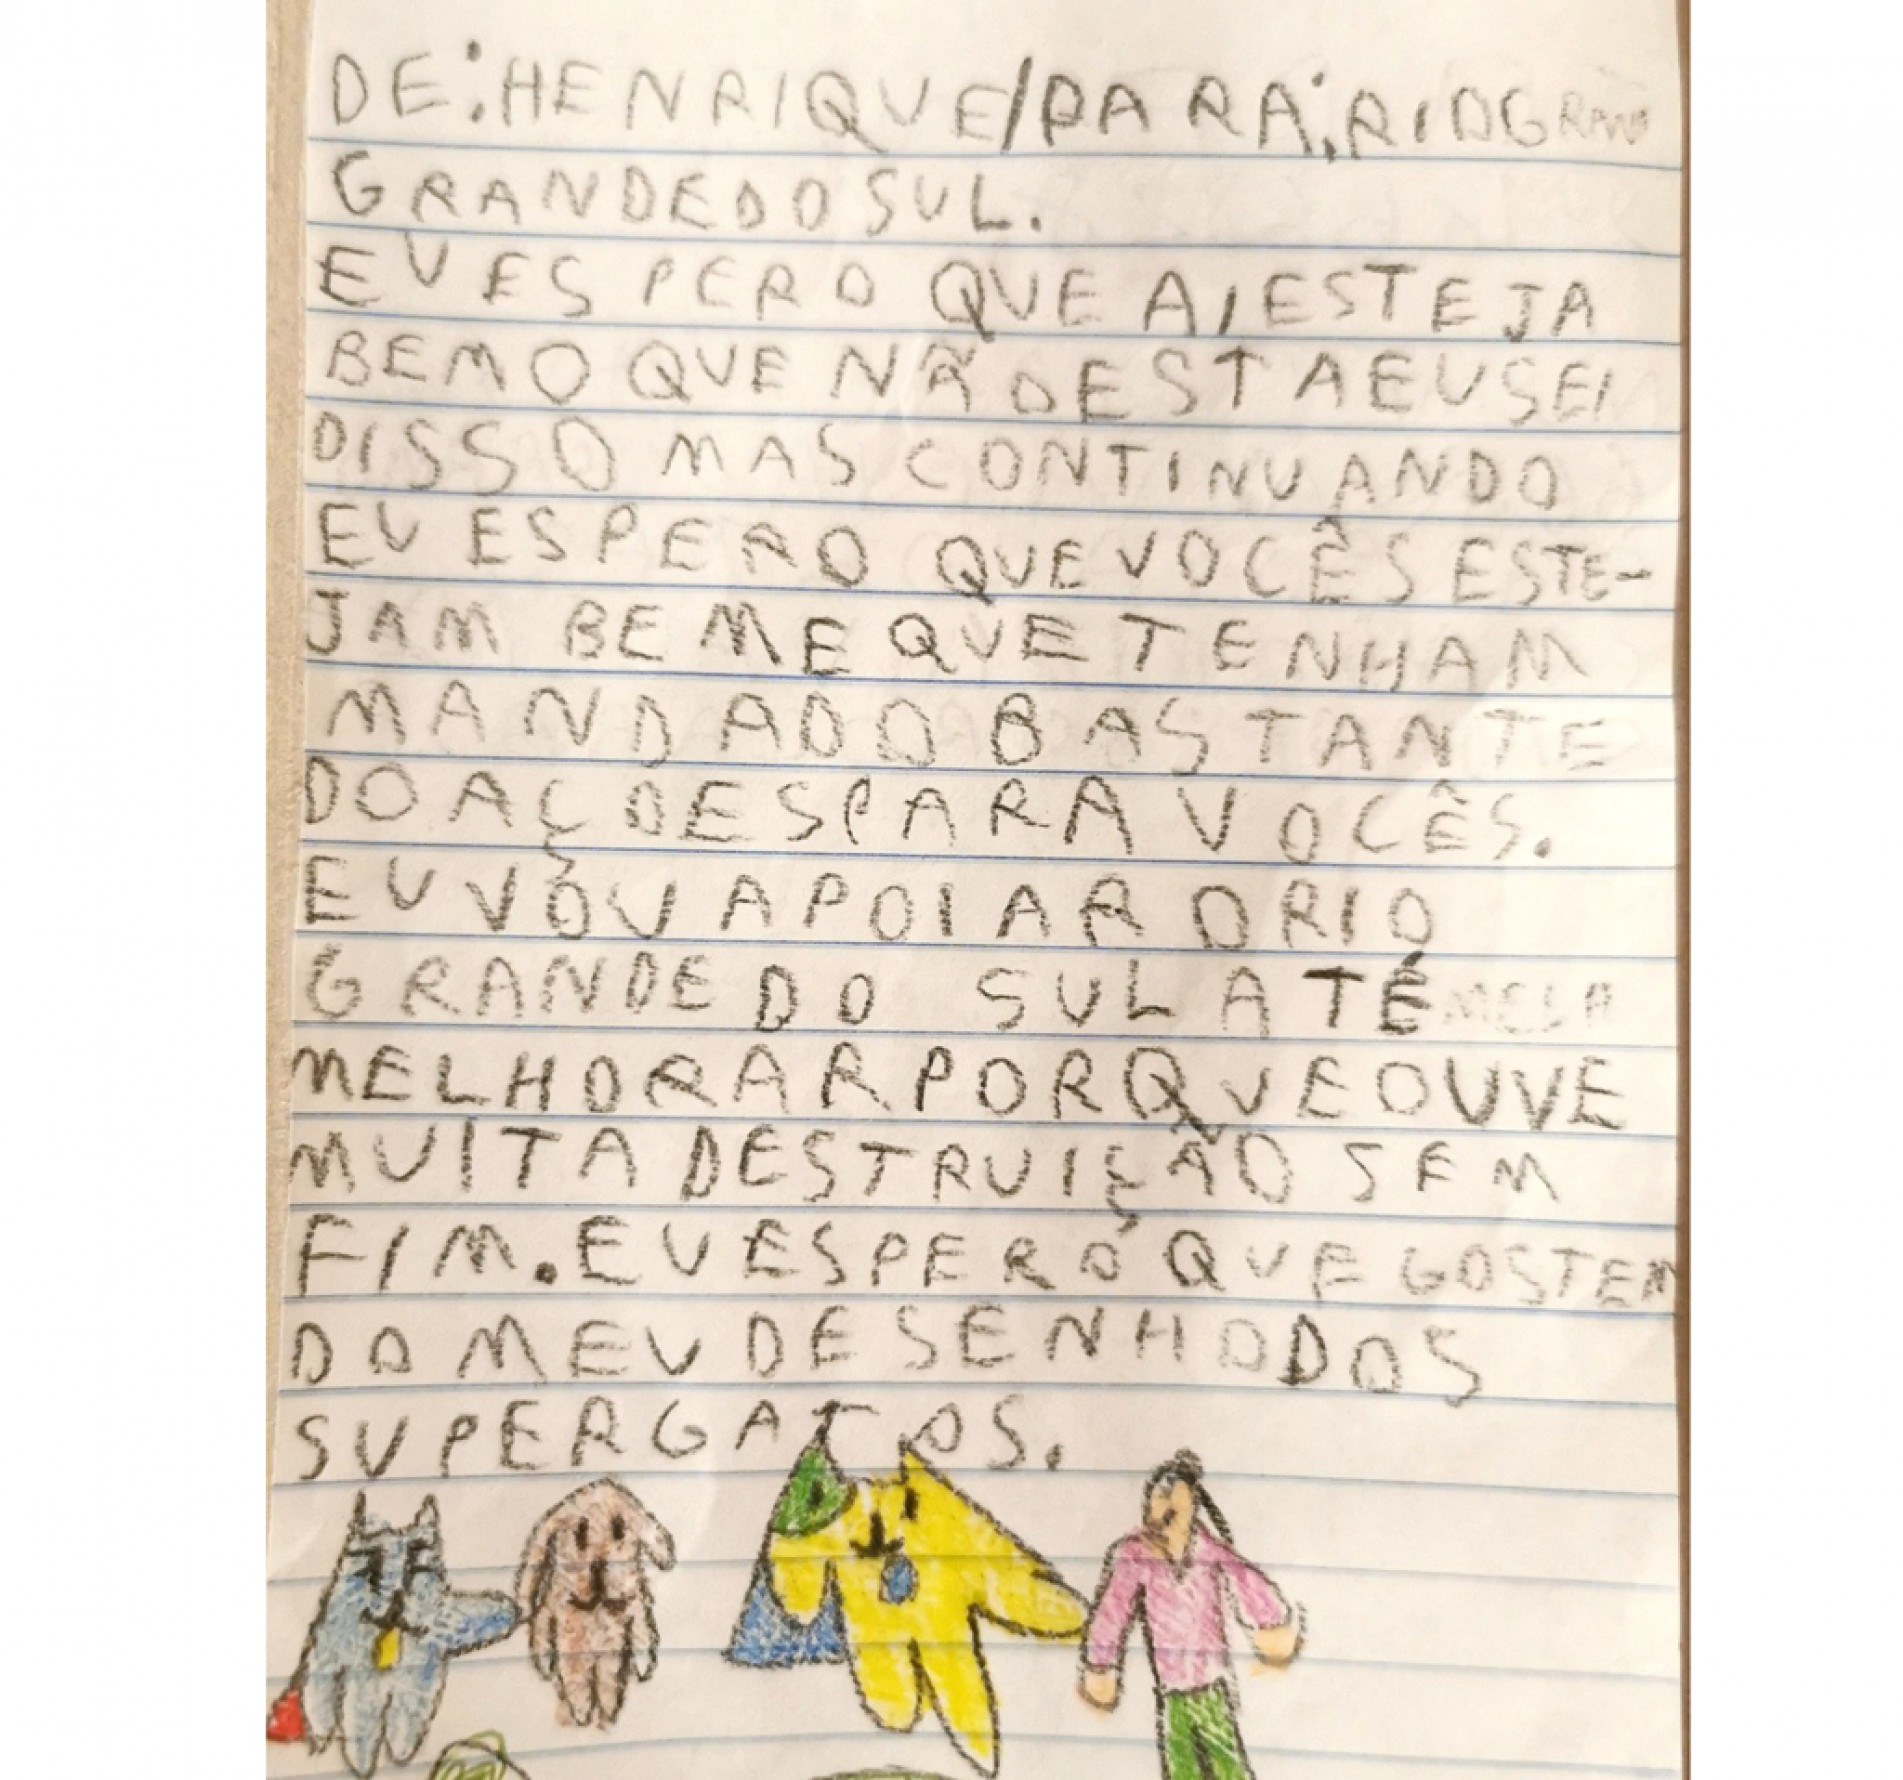 DE: HENRIQUE/PARA: RIO GRAN
GRANDE DO SUL.
EU ESPERO QUE AI ESTEJA
BEM O QUE NÃO ESTA EU SEI
DISSO MAS CONTINUANDO
EU ESPERO QUE VOCÊS ESTE-
JAM BEM E QUE TENHAM
MANDADO BASTANTE
DOAÇOES PARA VOCÊS.
EU VOU APOIAR O RIO
GRANDE DO SUL ATÉ
MELHORAR PORQUE OUVE
MUITA DESTRUIÇÃO SEM
FIM. EU ESPERO QUE GOSTEM
DO MEU DESENHO DOS
SUPERGATOS.